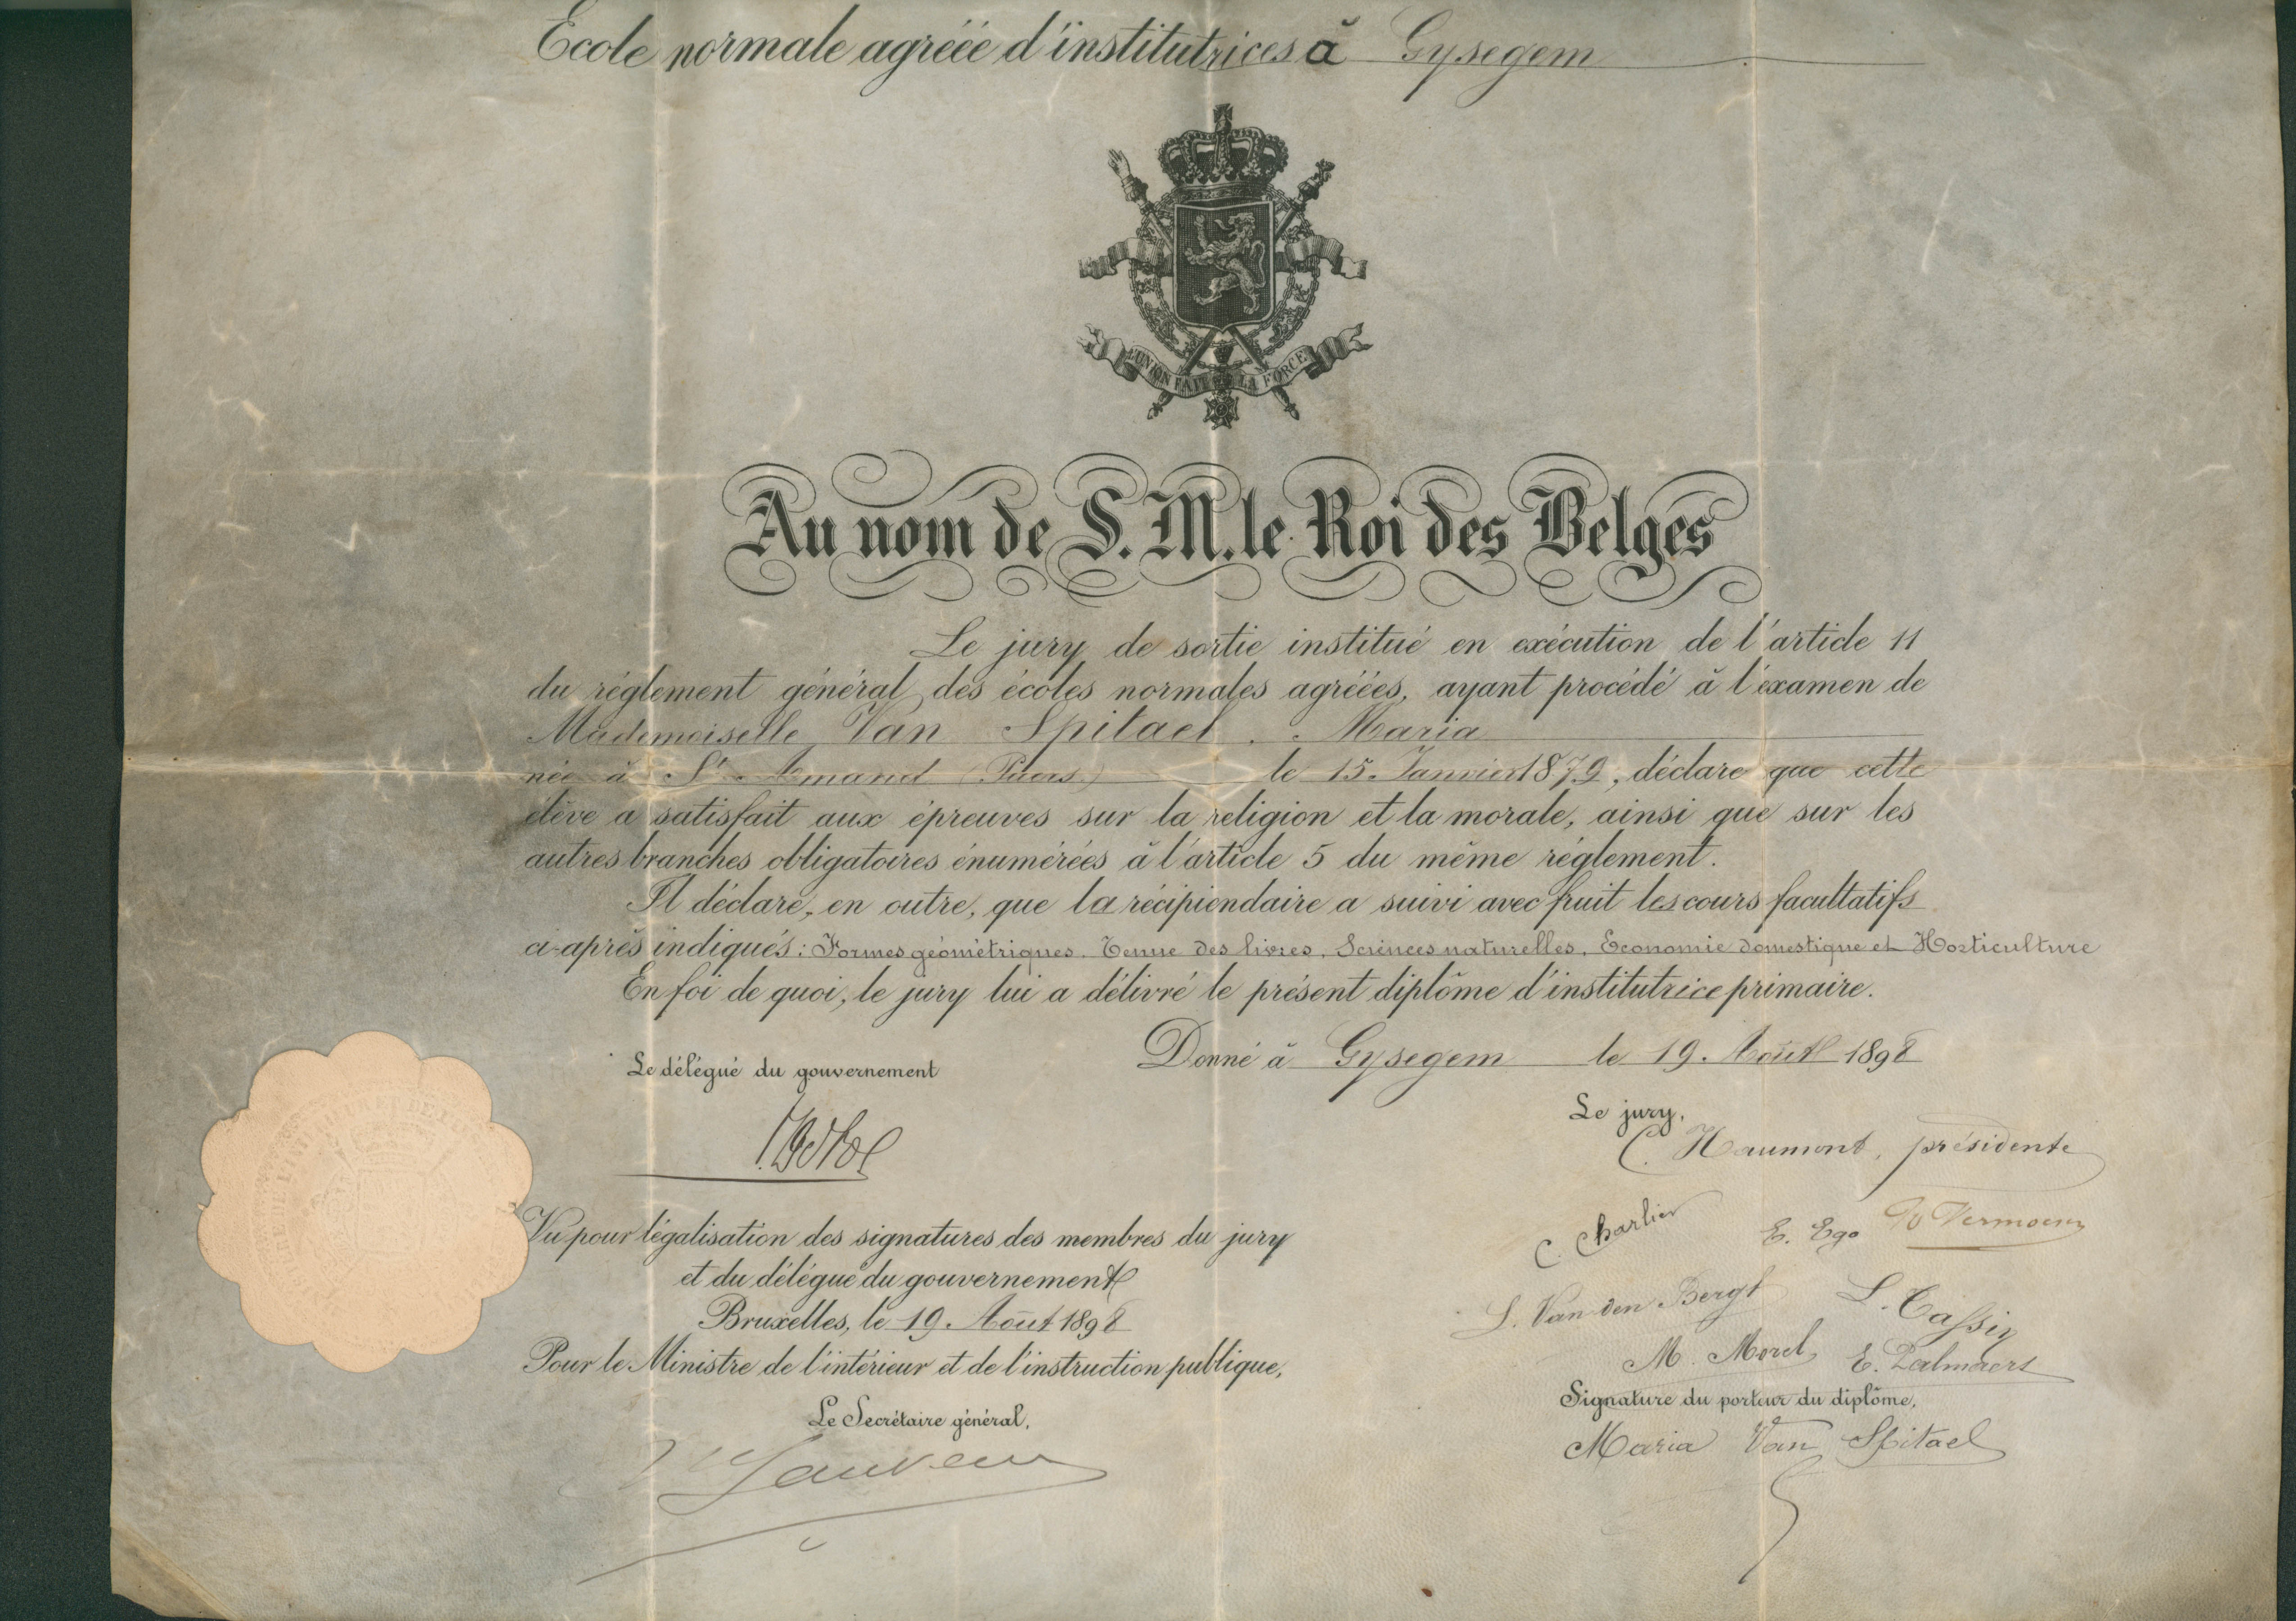 Ecole normale agréée d'institutrices à Gysegem
L'UNION FAIT LA FORCE
Au nom de S. M. le Roi des Belges
Le jury de sortie institué en exécution de l'article 11
du réglement général des écoles normales agréées, ayant procédé à l'examen de
Mademoiselle Van Spitael. Maria
née à St. Amand (Puers) le 15. Janvier 1879, déclare que cette
élève a satisfait aux épreuves sur la religion et la morale, ainsi que sur les
autres branches obligatoires énumérées à l'article 5 du même réglement.
Il déclare, en outre, que la récipiendaire a suivi avec fruit les cours facultatifs
ci-après indiqués: Formes géométriques. Tenue des livres, Sciences naturelles, Economie domestique et Horticulture
En foi de quoi, le jury lui a délivré le présent diplôme d'institutrice primaire.
Donné à Gysegem le 19. Août 1898
Le délégué du gouvernement
Le jury,
C. Haumont, présidente
C. Charlier E. Ego Vermoens
Vu pour légalisation des signatures des membres du jury
et du délégué du gouvernement
Bruxelles, le 19. Août 1898
Pour le Ministre de l'intérieur et de l'instruction publique,
Le Secrétaire général,
Sauveur
L. Van den Bergh L. Cassin
M. Morel E. Dalmaers
Signature du porteur du diplôme,
Maria Van Spitael